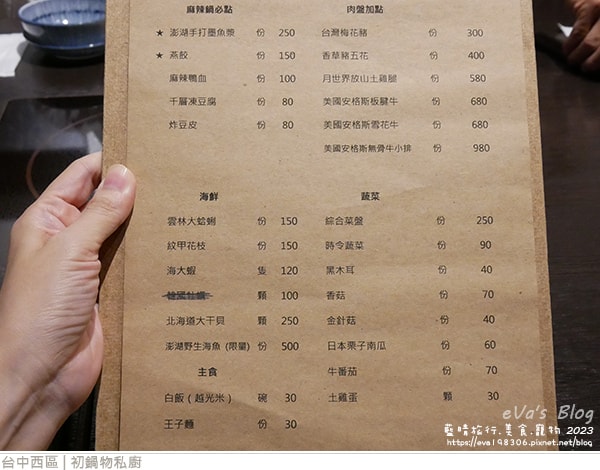 麻辣鍋必點
★ 澎湖手打墨魚漿 份 250
★ 燕餃 份 150
麻辣鴨血 份 100
千層凍豆腐 份 80
炸豆皮 份 80
肉盤加點
台灣梅花豬 份 300
香草豬五花 份 400
月世界放山土雞腿 份 580
美國安格斯板腱牛 份 680
美國安格斯雪花牛 份 680
美國安格斯無骨牛小排 份 980
海鮮
雲林大蛤蜊 份 150
紋甲花枝 份 150
海大蝦 隻 120
顆 100
北海道大干貝 顆 250
澎湖野生海魚 (限量) 份 500
主食
白飯 (越光米) 碗 30
王子麵 份 30
蔬菜
綜合菜盤 份 250
時令蔬菜 份 90
黑木耳 份 40
香菇 份 70
金針菇 份 40
日本栗子南瓜 份 60
牛番茄 份 70
土雞蛋 顆 30
eVa's Blog
藍晴旅行.美食.寵物 2023
https://eva198306.pixnet.net/blog
台中西區 | 初鍋物私廚